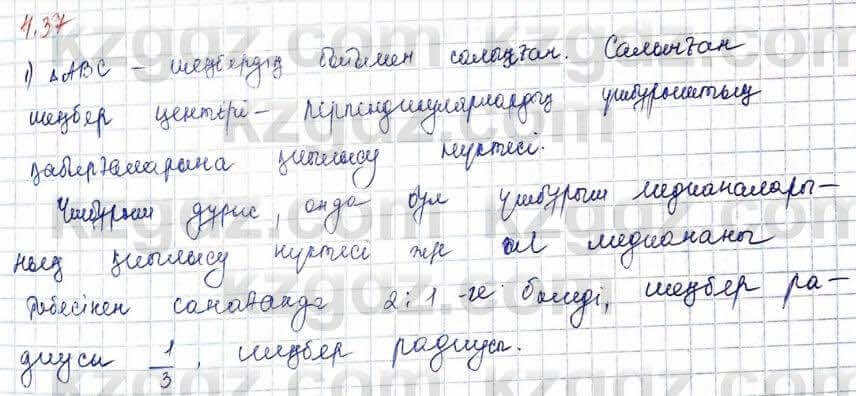 4.37
1) ΔABC – шеңбердің бойымен салынған. Салынған
шеңбер центірі – пірпіндикулярлардың үшбұрыштың
қабырғаларына қиылысу нүктесі.
Үшбұрыш дұрыс, онда бұл үшбұрыш медианалары–
ның қиылысу нүктесі жәр ол медиананы
төбесінен санағанда 2:1 -ге бөледі, шеңбер ра–
диусы 1/3, шеңбер радиусы.
kzgdz.com